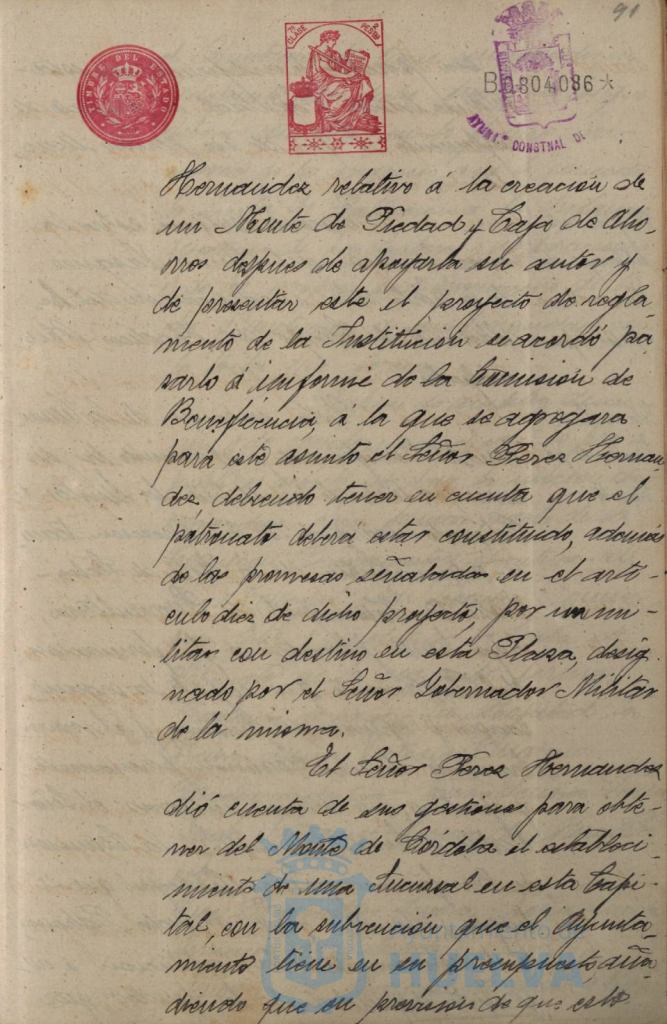 91
TIMBRE DEL ESTADO
7ª CLASE 2 PESETAS
B.0.804.086 *
AYUNTº CONSTNAL DE
Hernandez relativo á la creación de
un Monte de Piedad y Caja de Aho-
rros despues de apoyarla su autor y
de presentar este el proyecto de regla
mento de la Institución se acordó pa
sarlo á informe de la Comisión de
Beneficencia, á la que se agregara
para este asunto el Señor Perez Hernan
dez, debiendo tener en cuenta que el
patronato deberá estar constituido, además
de las promesas señaladas en el arti-
culo diez de dicho proyecto, por un mi-
litar con destino en esta Plaza, desig
nado por el Señor Gobernador Militar
de la misma.
El Señor Perez Hernandez
dió cuenta de sus gestiones para obte-
ner del Monte de Córdoba el estableci-
miento de una Sucursal en esta Capi-
tal, con la subvención que el Ayunta-
miento tiene en su presupuesto, aña
diendo que en prevision de que esto
HUELVA